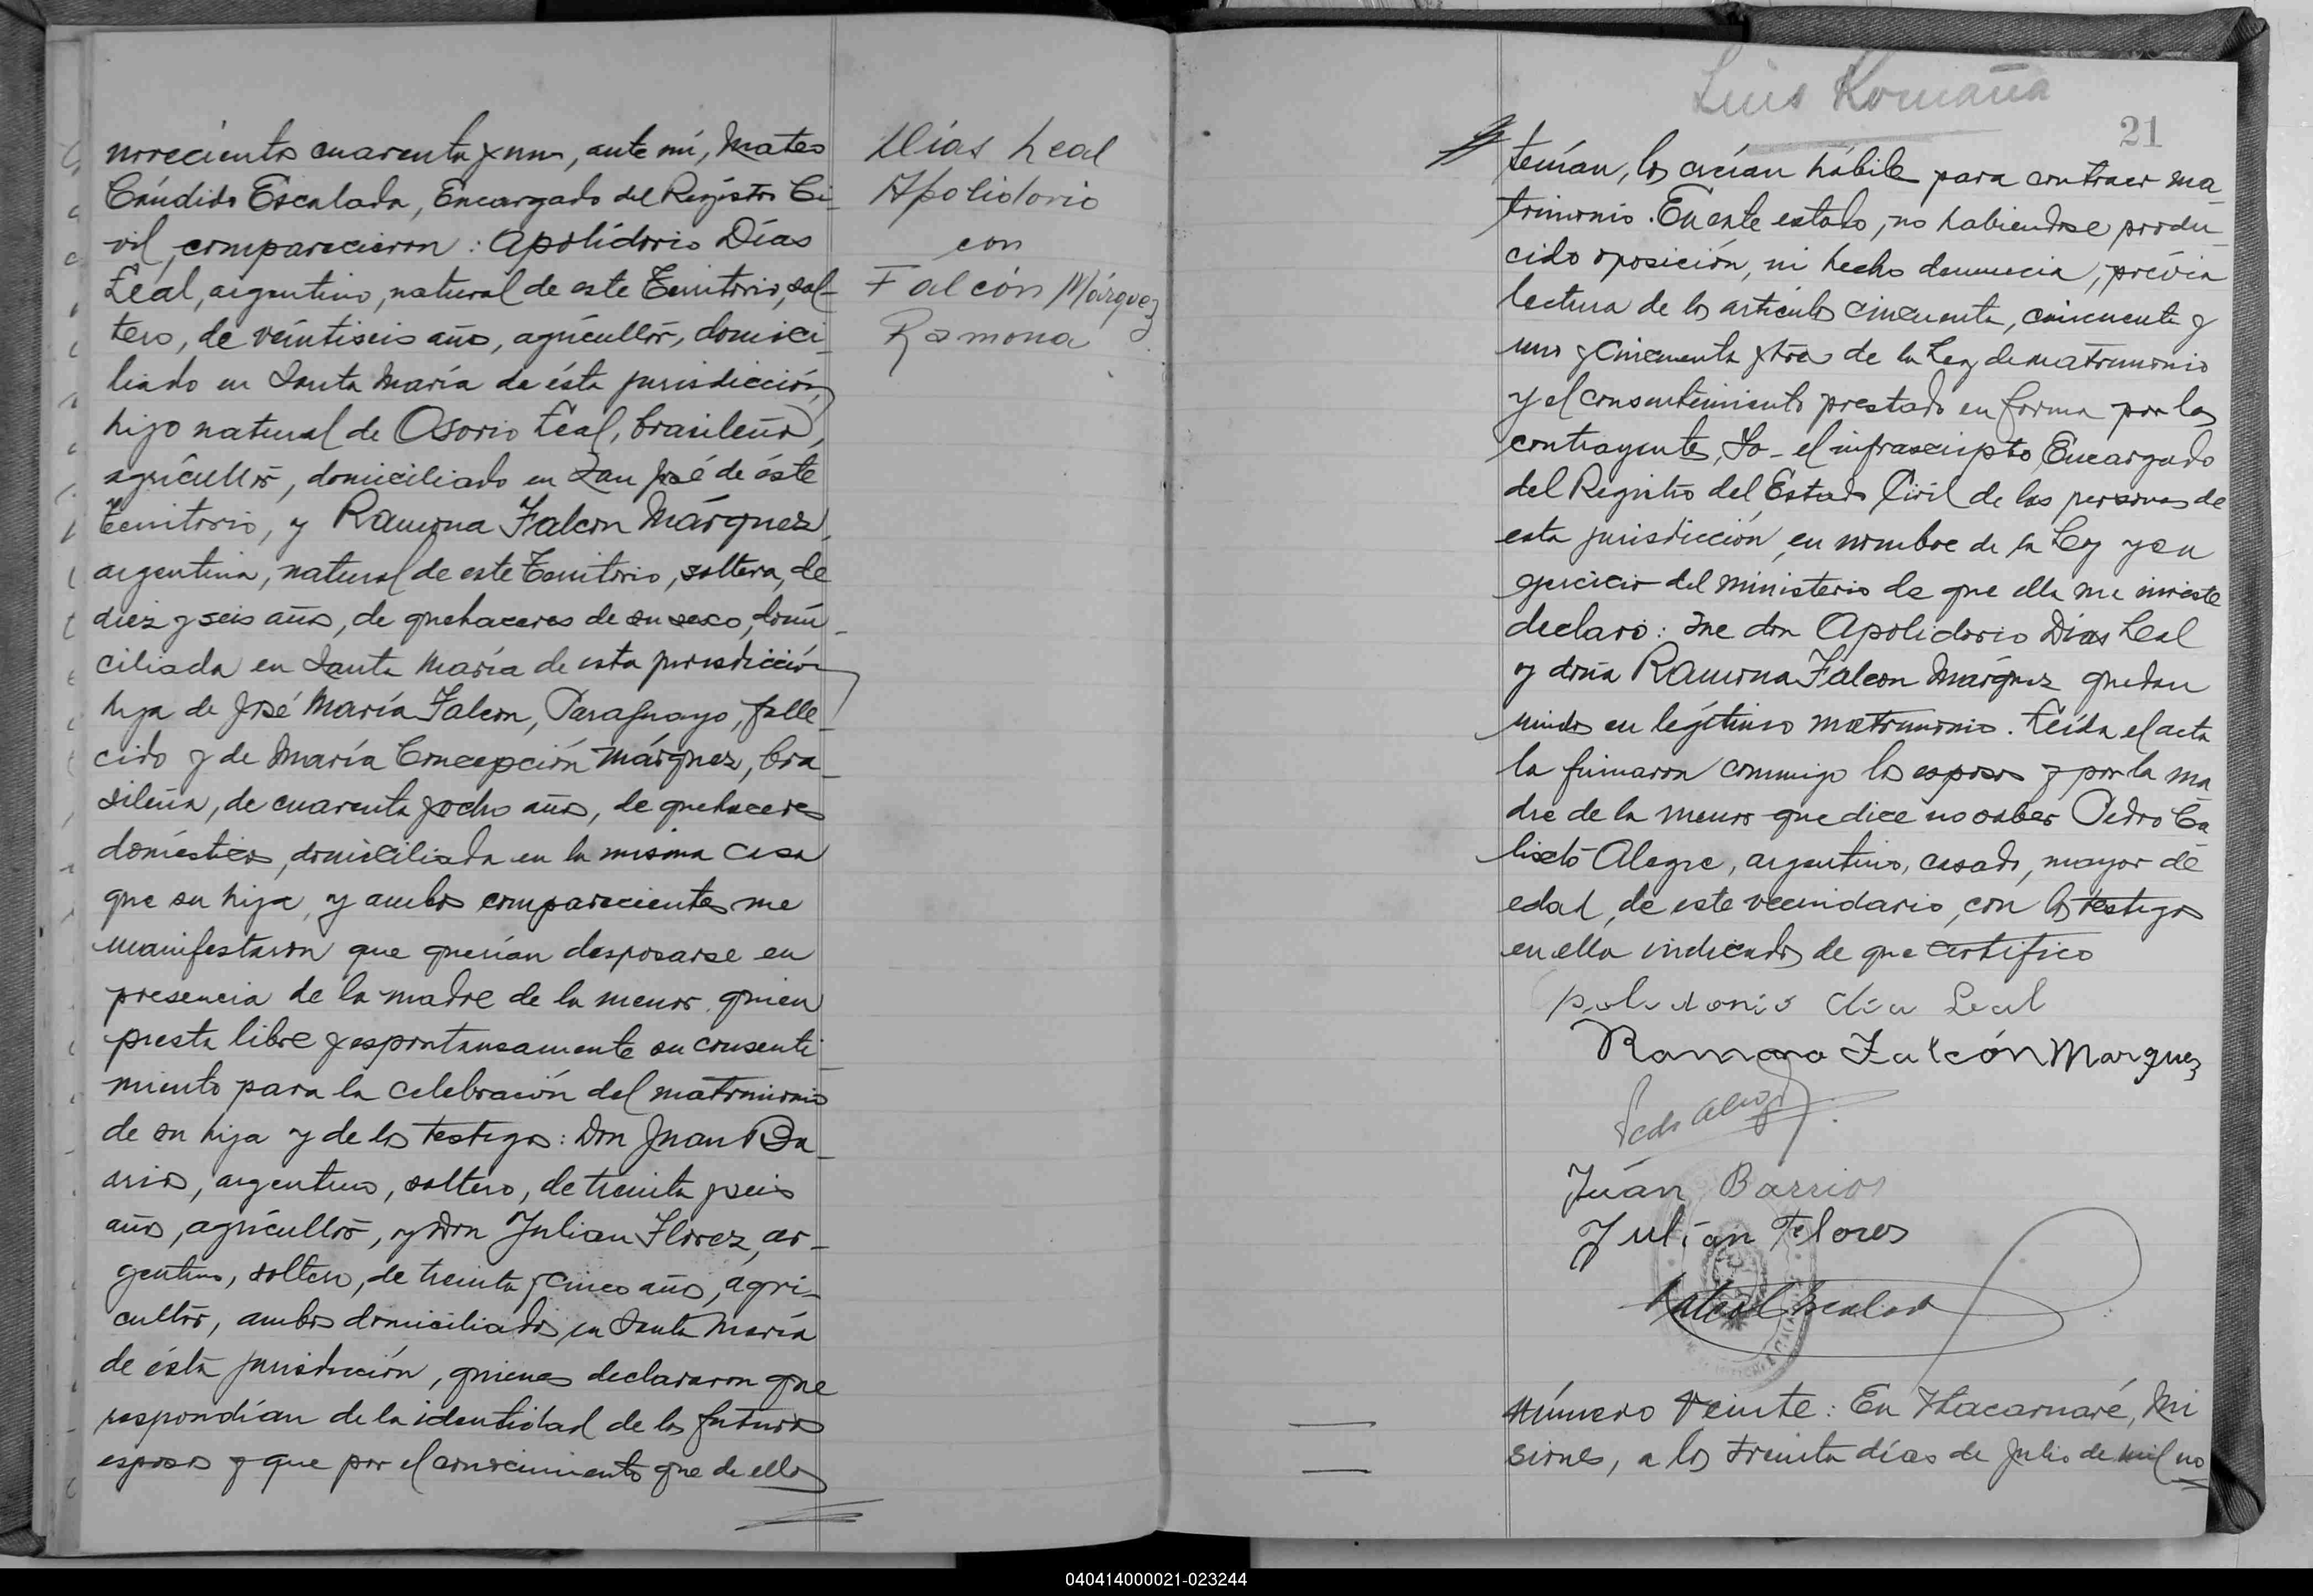 novecientos cuarenta y uno, ante mí, Mateo
Cándido Escalada, Encargado del Registro Ci-
vil, comparecieron: Apolidorio Días
Leal, argentino, natural de este Territorio, sol-
tero, de veintiseis años, agricultor, domici-
liado en Santa María de ésta jurisdicción,
hijo natural de Osorio Leal, brasileño,
agricultor, domiciliado en San José de éste
Territorio, y Ramona Falcon Márquez,
argentina, natural de este Territorio, soltera, de
diez y seis años, de quehaceres de su sexo, domi-
ciliada en Santa María de esta jurisdicción
hija de José María Falcon, Paraguayo, falle-
cido y de María Concepción Márquez, bra-
sileña, de cuarenta y ocho años, de quehaceres
domésticos, domiciliada en la misma casa
que su hija, y ambos comparecientes me
manifestaron que querían desposarse en
presencia de la madre de la menor quien
presta libre y espontaneamente su consenti-
miento para la celebración del matrimonio
de su hija y de los testigos: Don Juan Ba-
rrios, argentino, soltero, de treinta y seis
años, agricultor, y Don Julian Florez, ar-
gentino, soltero, de treinta y cinco años, agri-
cultor, ambos domiciliados en Santa María
de ésta jurisdicción, quienes declararon que
respondían de la identidad de los futuros
esposos y que por el conocimiento que de ellos
Días Leal
Apolidorio
con
Falcón Márquez
Ramona
Luis Romaña
21
tenían, los creían hábiles para contraer ma
trimonio. En este estado, no habiendose produ-
cido oposición, ni hecho denuncia, prévia
lectura de los artículos cincuenta, cincuenta y
uno y cincuenta y tres de la Ley de matrimonio
y el consentimiento prestado en forma por los
contrayentes, Yo- el infrascripto Encargado
del Registro del Estado Civil de las personas de
esta jurisdicción, en nombre de la Ley y en
ejercicio del ministerio de que ella me inviste
declaro: Que don Apolidorio Dias Leal
y doña Ramona Falcon Márquez quedan
unidos en legítimo matrimonio. Leída el acta
la firmaron conmigo los esposos y por la ma
dre de la menor que dice no saber Pedro Ca
lixto Alegre, argentino, casado, mayor de
edad, de este vecindario, con los testigos
en ella indicados de que certifico
polidonio dia Leal
Ramona Falcón Marquez
Pedro Alegre
Juán Barrios
Julián Flores
Mateo C Escalada
Número Veinte: En Itacaruaré, Mi
siones, a los treinta días de Julio de mil no
040414000021-023244